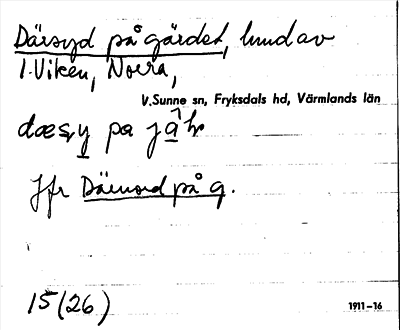 Därsyd på gärdet, lund av
1. Viken, Norra,
V. Sunne sn, Fryksdals hd, Värmlands län
pa
Jfr Därnord på g.
15 (26)
1911–16